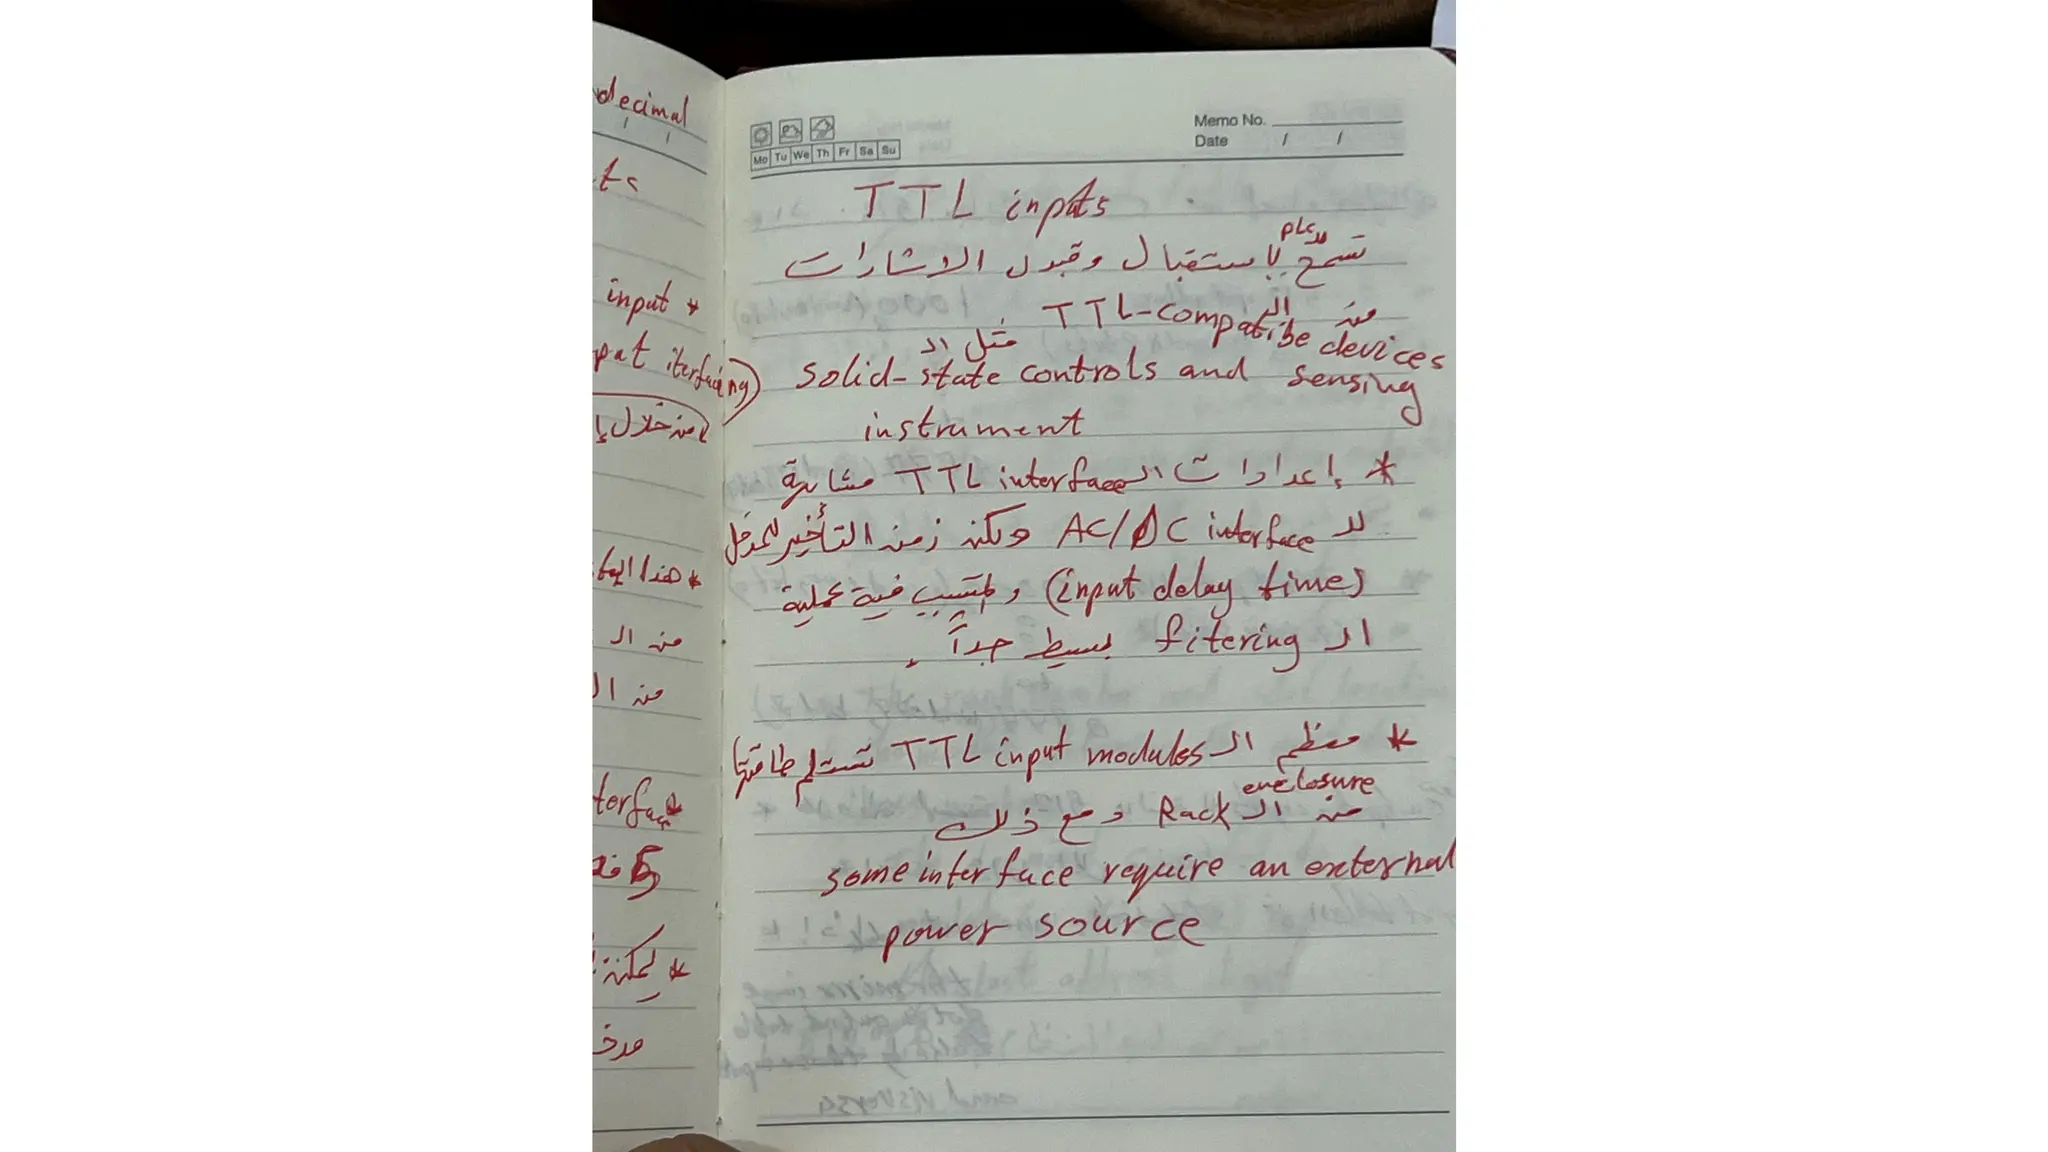 decimal
ts
input *
put iterfacing)
من خلال إ
* هذا الها
من الـ
من الـ
terface*
* يمكن
مدخ
Memo No.
Date / /
Mo Tu We Th Fr Sa Su
TTL inputs
تسمح للـ PLC بإستقبال وقبول الاشارات
من الـ TTL-compatibe devices
مثل الـ
solid-state controls and sensing
instrument
* إعدادات الـ TTL interface مشابهة
لـ AC/DC interface ولكن زمن التأخير للمدخل
(input delay time) والمتسبب فية عملية
الـ fitering بسيط جداً.
* معظم الـ TTL input modules تستلم طاقتها
من الـ Rack enclosure ومع ذلك
some interface require an external
power source